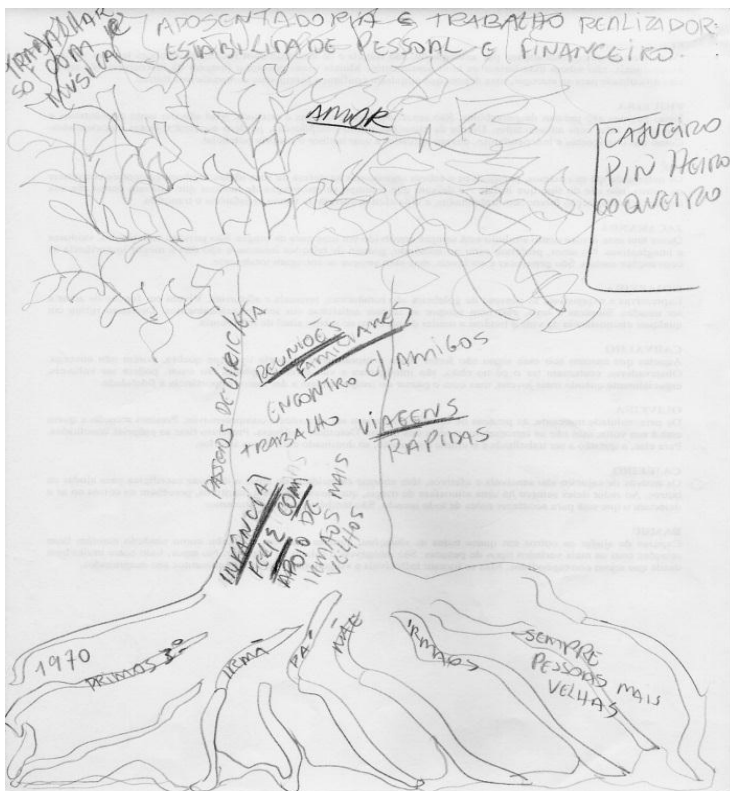 TRABALHAR
SÓ COM A
MÚSICA
APOSENTADORIA E TRABALHO REALIZADOR.
ESTABILIDADE PESSOAL E FINANCEIRO.
AMOR
CAJUEIRO
PINHEIRO
COQUEIRO
PASSEIOS DE BICICLETA
REUNIÕES
FAMILIARES
ENCONTRO C/ AMIGOS
TRABALHO
VIAGENS
RÁPIDAS
INFÂNCIA
FELIZ COM
APOIO DE MAIS
IRMÃOS
VELHOS
1970
PRIMOS 3º
IRMÃ
PAI
MÃE
IRMÃOS
SEMPRE
PESSOAS MAIS
VELHAS